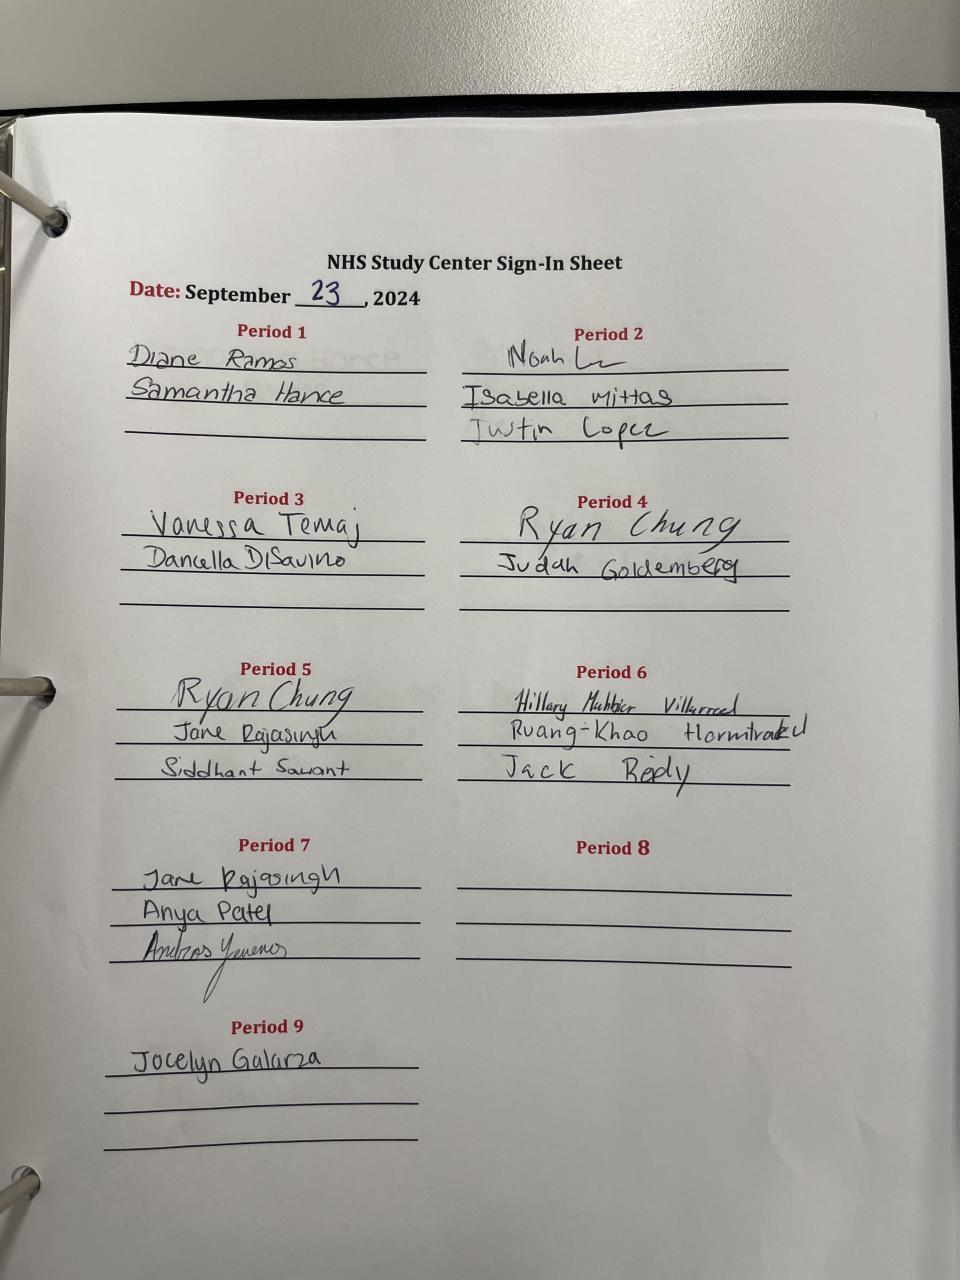 NHS Study Center Sign-In Sheet
Date: September 23, 2024
Period 1
Diane Ramos
Samantha Hance
Period 2
Noah
Isabella Mittas
Justin Lopez
Period 3
Vanessa Temaj
Daniella DiSavino
Period 4
Ryan Chung
Judah Goldemberg
Period 5
Ryan Chung
Jane Rajasingh
Siddhant Sawant
Period 6
Hillary
Ruang-Khao
Jack
Period 7
Jane Rajasingh
Anya Patel
Andros
Period 8
Period 9
Jocelyn Galarza